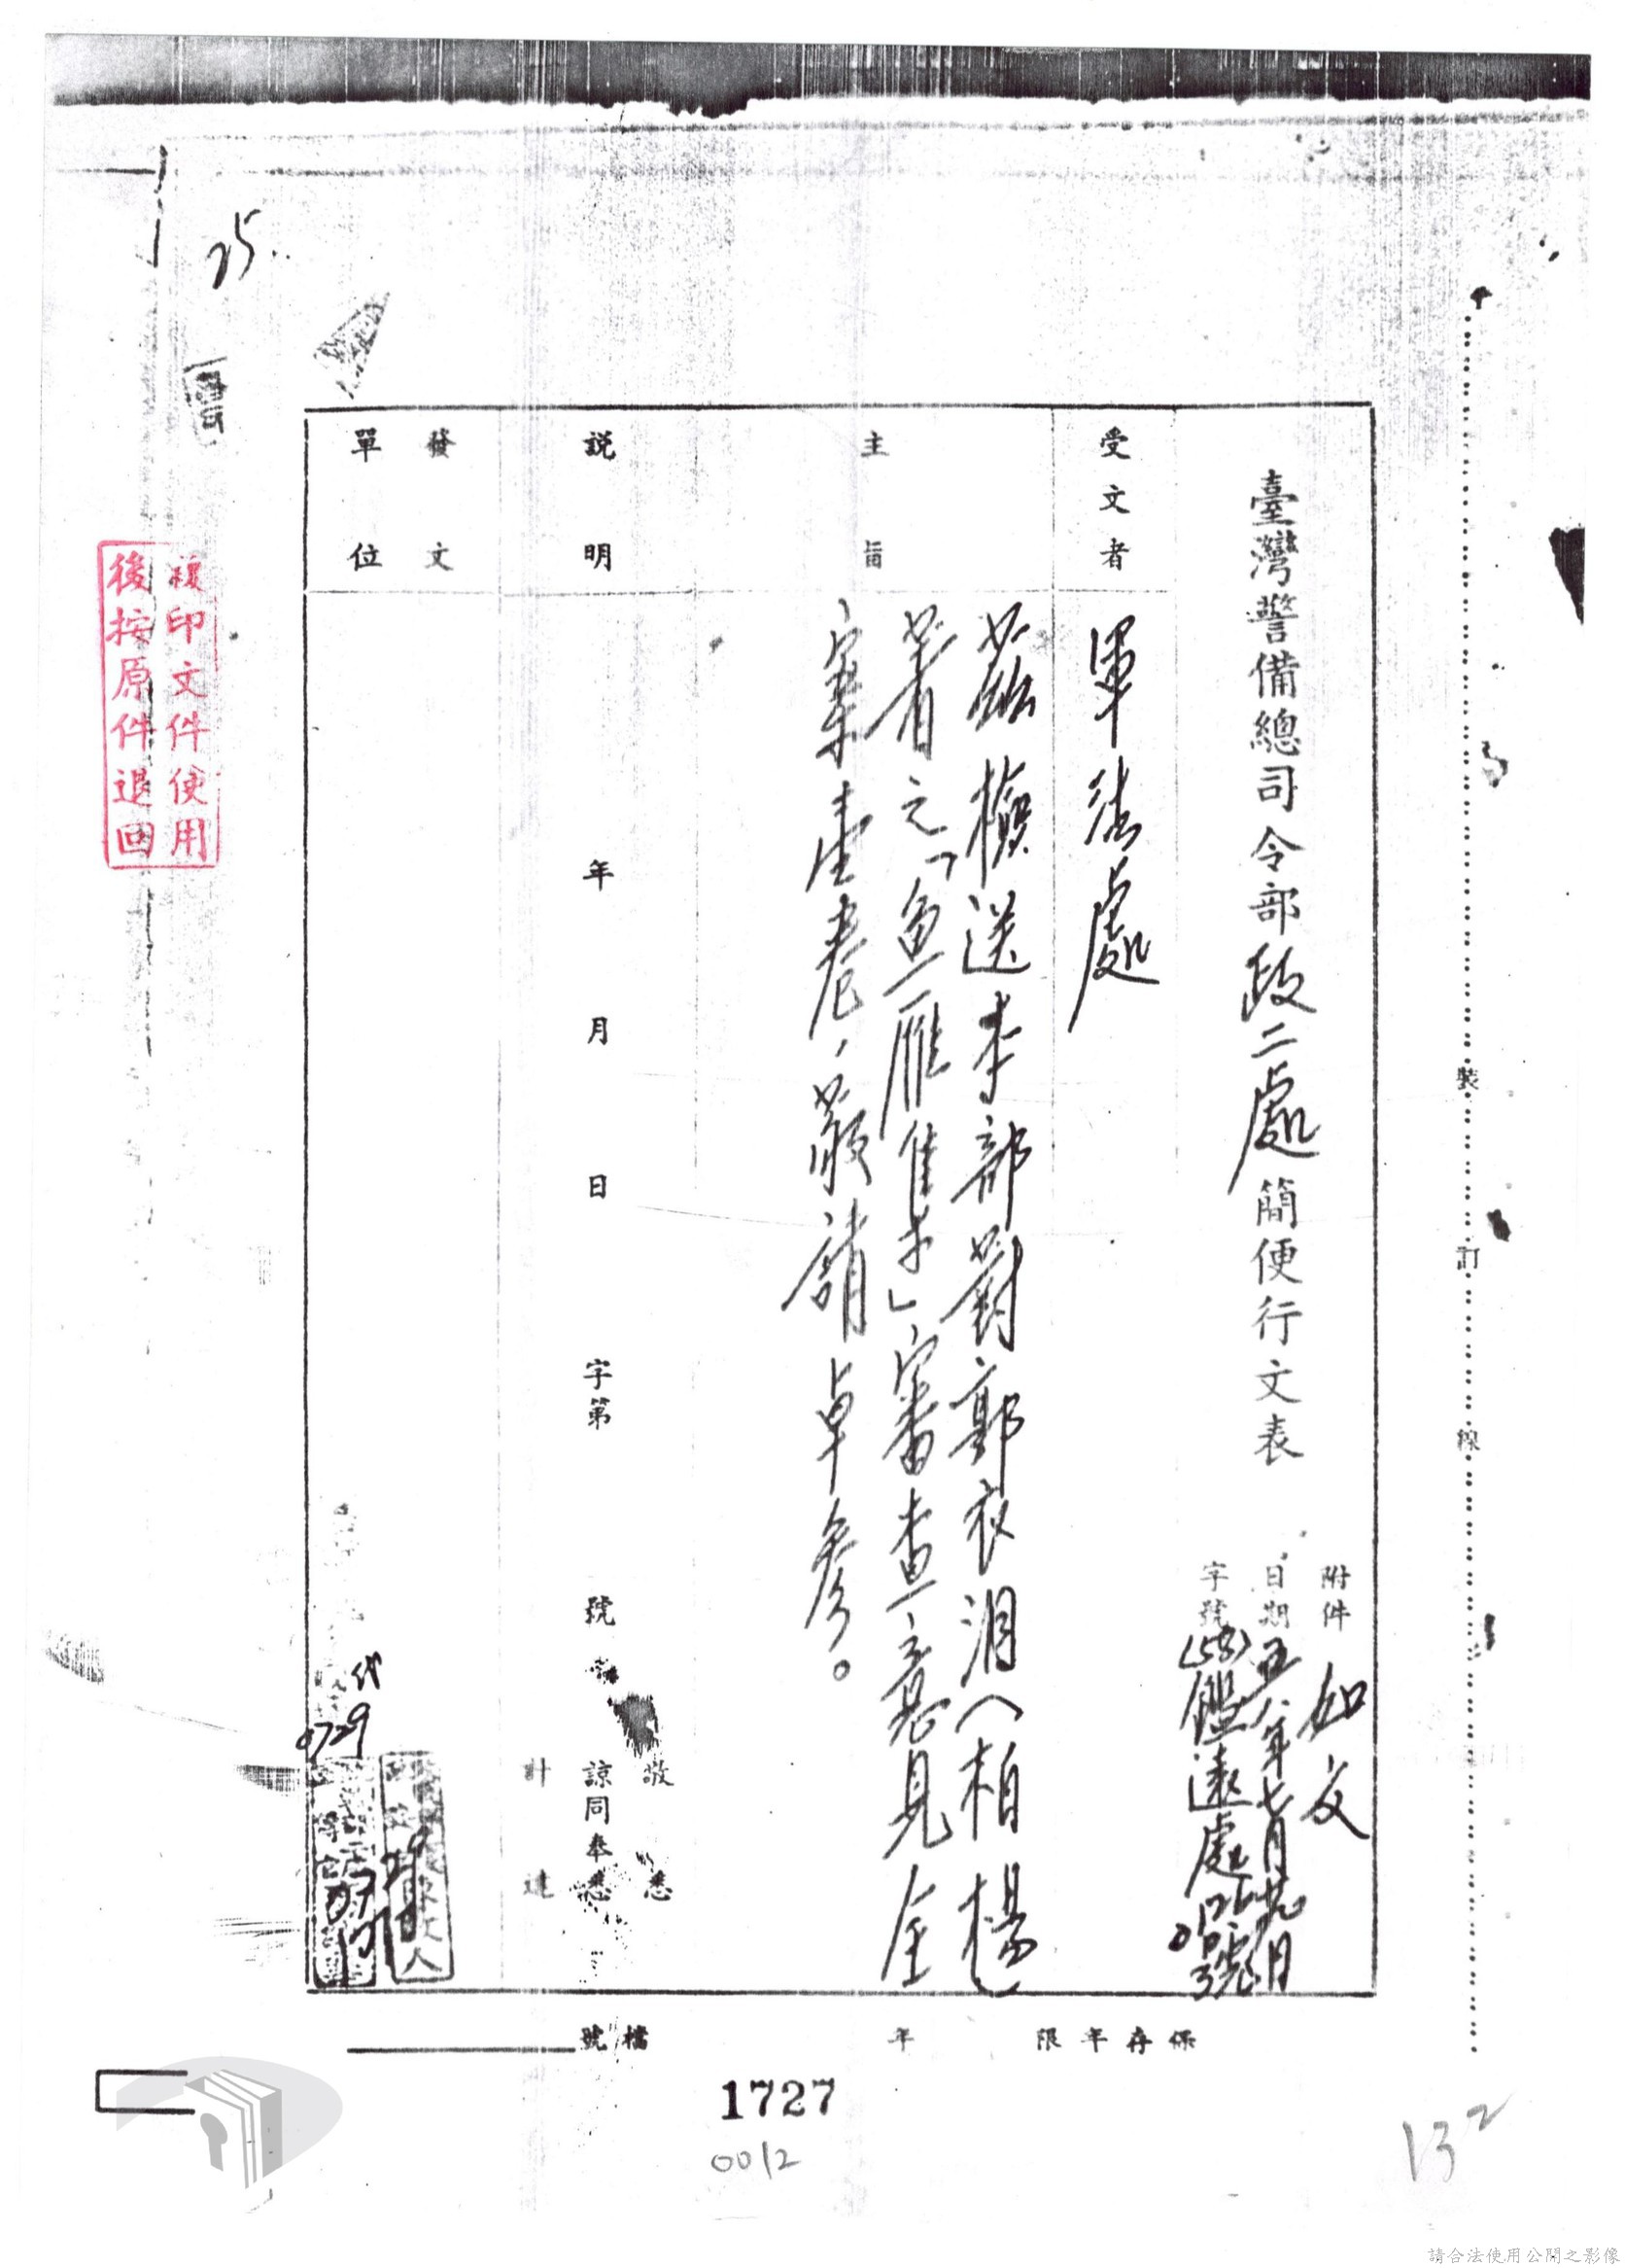 臺灣警備總司令部政二處簡便行文表
附件 如文
日期 五八年七月廿九日
字號 (58)鑑遠處 號
受文者
軍法處
主旨
茲檢送本部對郭衣洞(柏楊)
著之「魚雁集」審查意見全
案壹卷,敬請卓參。
說明
年 月 日 字第 號
敬悉
諒同奉悉
計達
發文
單位
代
0729
複印文件使用
後按原件退回
裝
訂
線
保存年限 年
檔號
1727
0012
132
請合法使用公開之影像